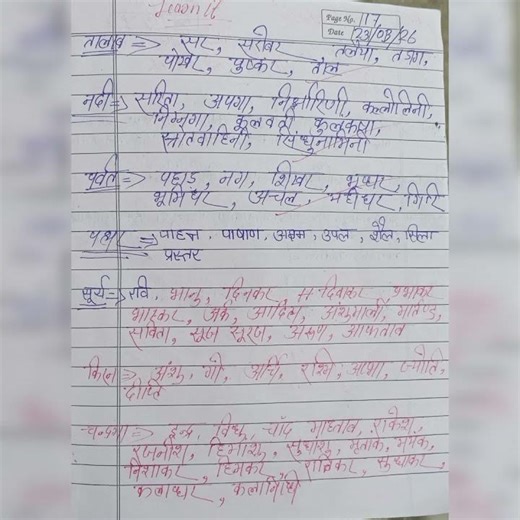 Page No. 117
Date 23/08/26
तालाब => सर, सरोवर, तलैया, तड़ाग,
पोखर, पुष्कर, ताल
नदी => सरिता, अपगा, निर्झरिणी, कल्लोलिनी,
निम्नगा, कूलवती, कुलंकशा,
स्रोतवाहिनी, सिंधुगामिनी
पर्वत => पहाड़, नग, शिखर, भूधर,
भूमिधर, अचल, महीधर, गिरि
पत्थर => पाहन, पाषाण, अश्म, उपल, शैल, शिला
प्रस्तर
सूर्य => रवि, भानु, दिनकर, दिवाकर, प्रभाकर
भास्कर, अर्क, आदित्य, अंशुमाली, मार्तण्ड
सविता, सूरज, अरूण, आफताब
किरन => अंशु, गौ, अर्चि, रश्मि, आभा, ज्योति,
दीप्ति
चन्द्रमा => इन्द्र, विधु, चाँद, माहताब, राकेश,
रजनीश, हिमांशु, सुधांशु, मृगांक, मयंक,
निशाकर, हिमकर, शशिकर, सुधाकर,
कलाधर, कलानिधि